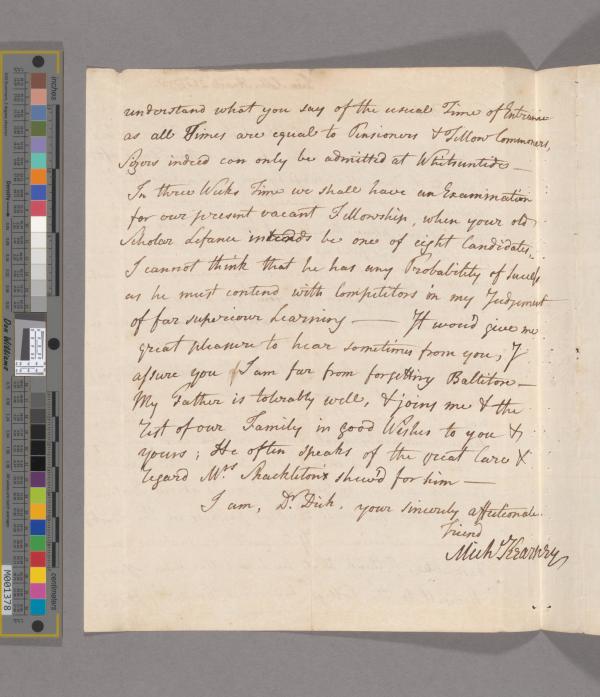 understand what you say of the usual Time of Entrance
as all Times are equal to Pensioners & Fellow Commoners,
Sizers indeed can only be admitted at Whitsuntide —
In three Weeks Time we shall have an Examination
for our present vacant Fellowship, when your old
Scholar Lefanu intends be one of eight Candidates,
I cannot think that he has any Probability of Success
as he must contend with Competitors in my Judgement
of far superiour Learning — It wou'd give me
great pleasure to hear sometimes from you, I
assure you I am far from forgetting Balitore —
My Father is tolerably well, & joins me & the
rest of our Family in good Wishes to you &
yours; He often speaks of the great Care &
regard Mrs Shackleton shew'd for him —
I am, Dr. Dick, your sincerely affectionate
Friend
Mich Kearney
inches
centimeters
Don Williams
M001378